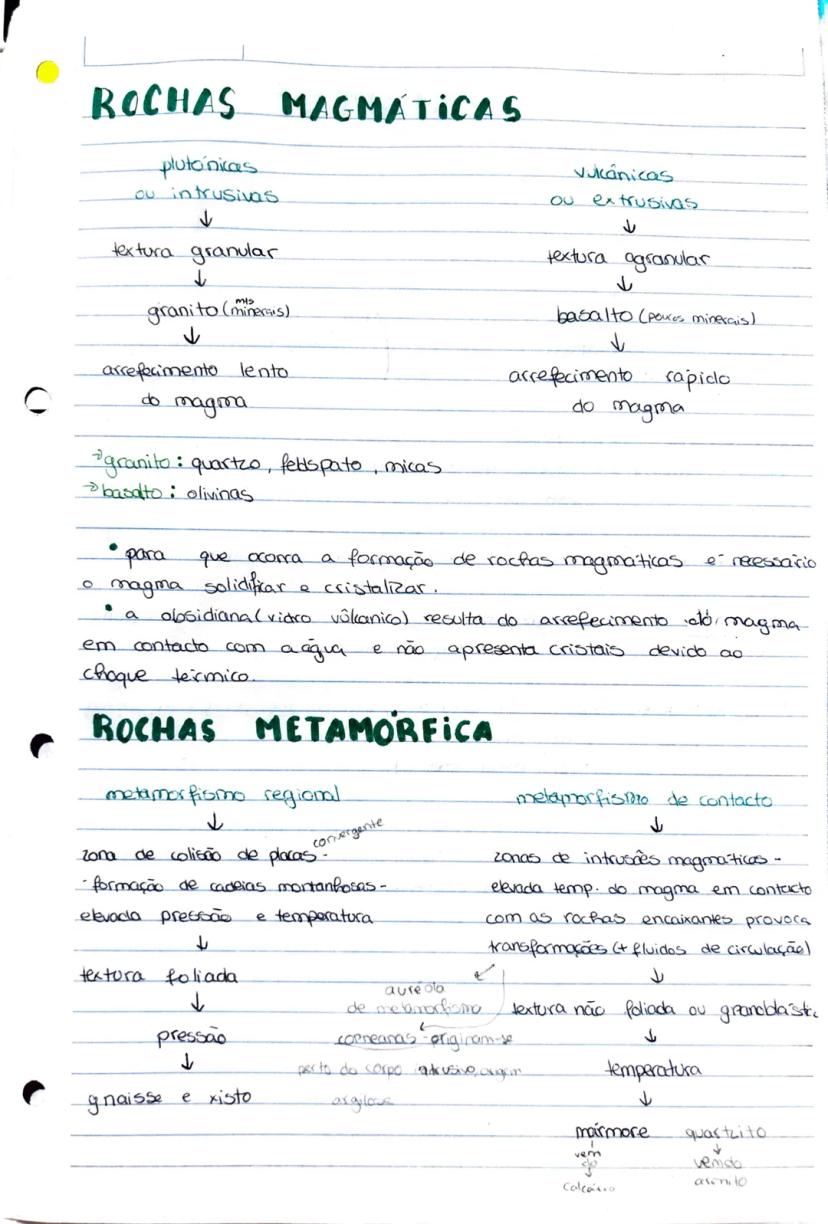 ROCHAS MAGMÁTICAS
plutónicas
ou intrusivas
↓
textura granular
↓
granito (mts minerais)
↓
arrefecimento lento
do magma
vulcânicas
ou extrusivas
↓
textura agranular
↓
basalto (poucos minerais)
↓
arrefecimento rápido
do magma
→ granito: quartzo, feldspato, micas
→ basalto: olivinas
• para que ocorra a formação de rochas magmáticas é necessário
o magma solidificar e cristalizar.
• a obsidiana (vidro vûlcanico) resulta do arrefecimento do magma
em contacto com a água e não apresenta cristais devido ao
choque térmico.
ROCHAS METAMÓRFICA
metamorfismo regional
↓
convergente
zona de colisão de placas -
- formação de cadeias montanhosas -
elevada pressão e temperatura
↓
textura foliada
↓
pressão
↓
gnaisse e xisto
metamorfismo de contacto
↓
zonas de intrusões magmáticas -
elevada temp. do magma em contacto
com as rochas encaixantes provoca
transformações (+ fluidos de circulação)
↓
textura não foliada ou granoblástic
↓
temperatura
↓
mármore quartzito
vem do calcário
vem do arenito
auréola
de metamorfismo
corneanas - originam-se
perto do corpo intrusivo, origem
argilosa